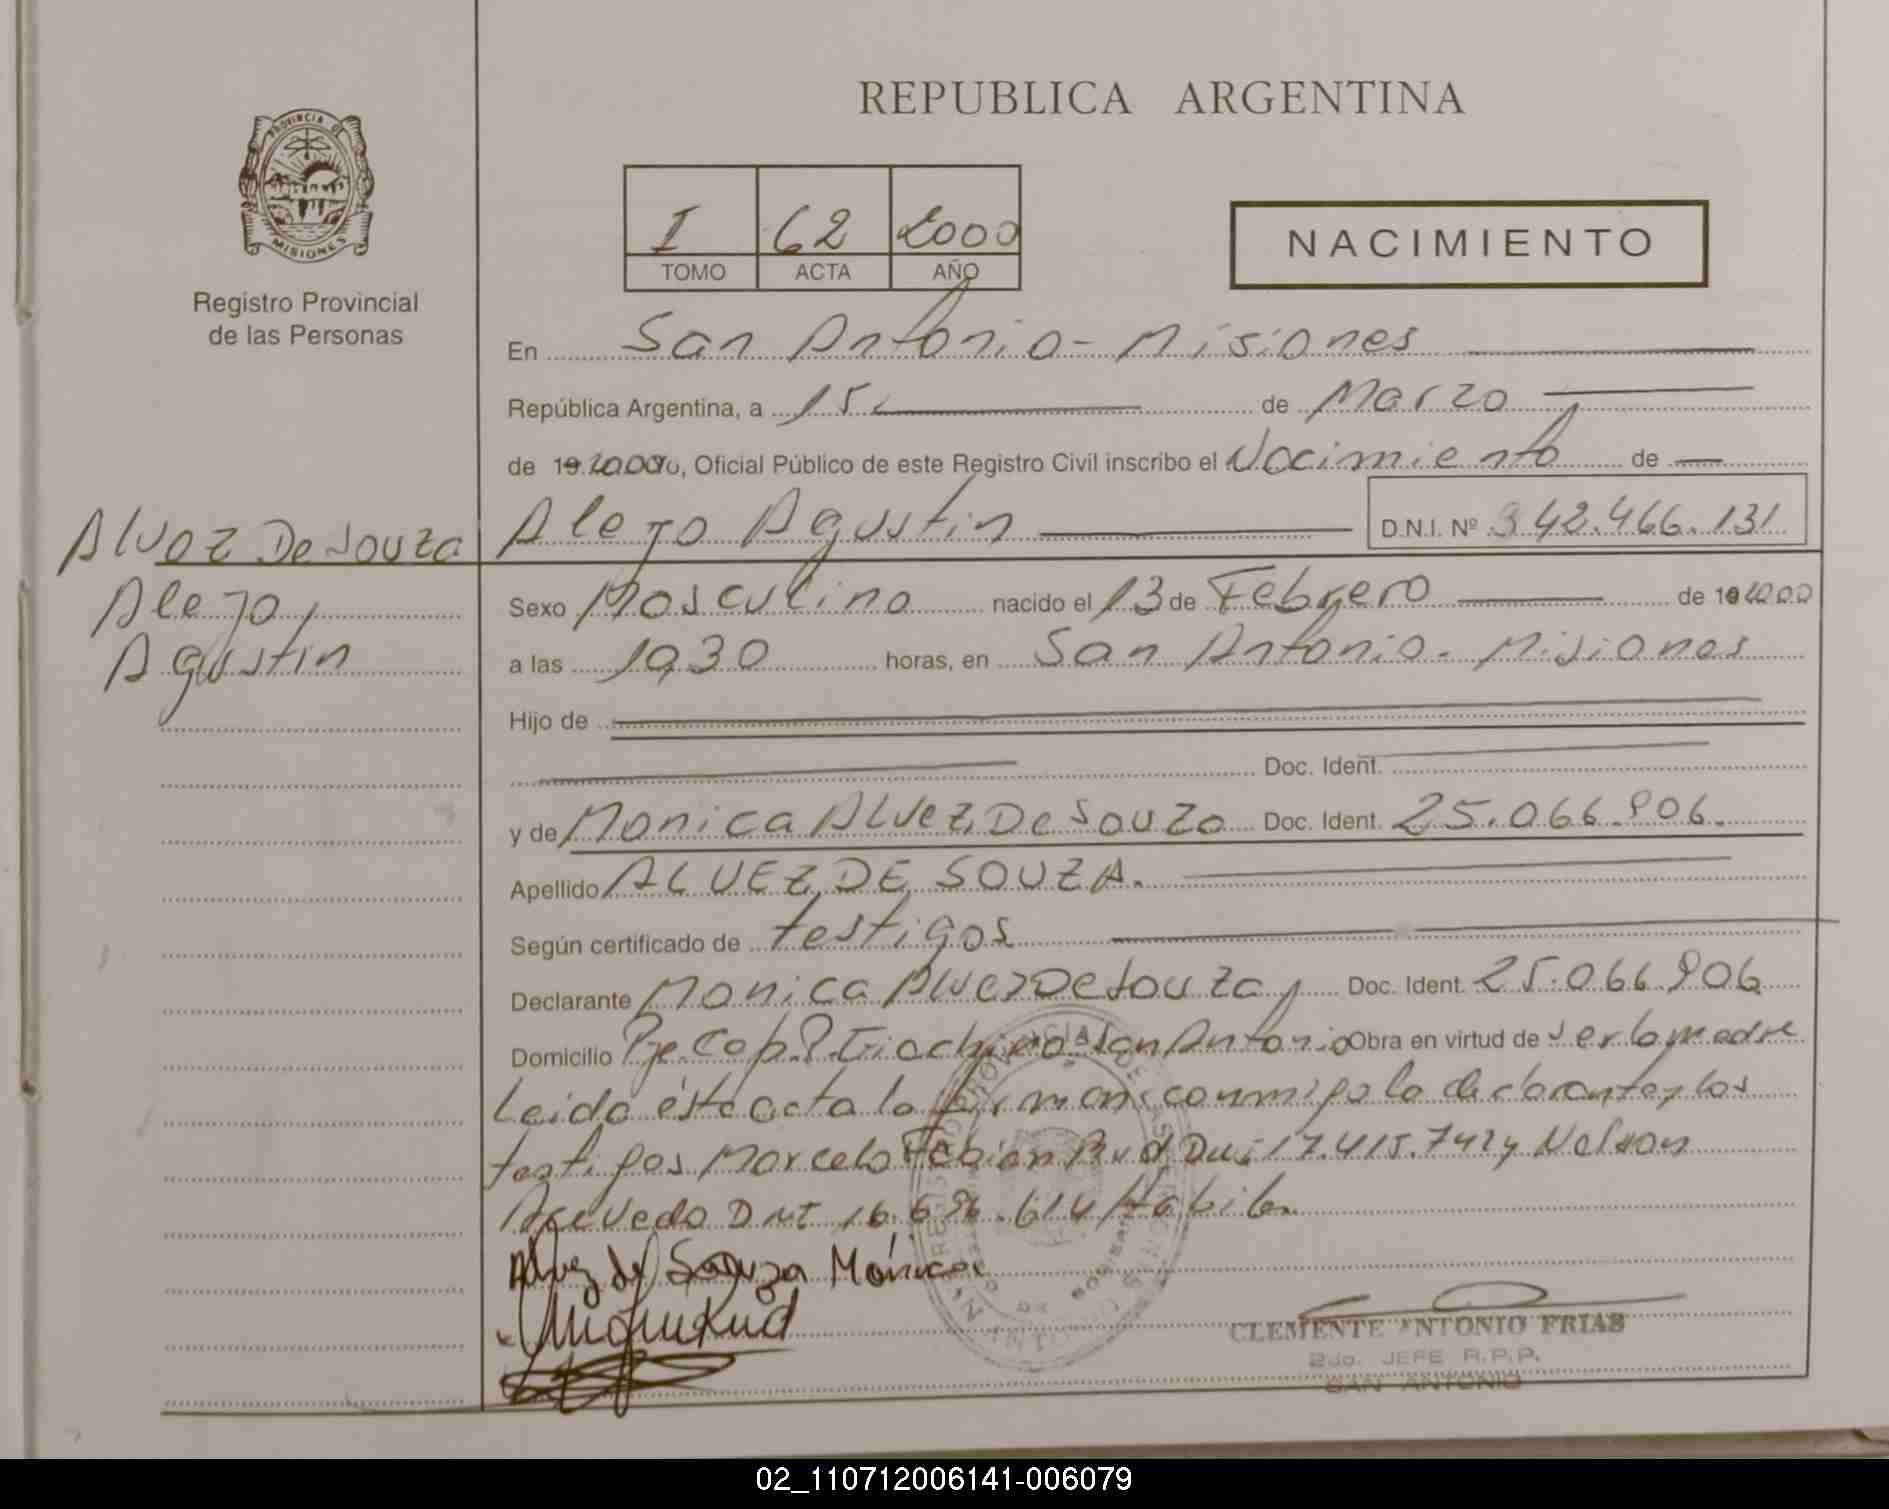 REPUBLICA ARGENTINA
PROVINCIA DE
MISIONES
Registro Provincial
de las Personas
I 62 2000
TOMO ACTA AÑO
NACIMIENTO
En San Antonio - Misiones
República Argentina, a 15 de Marzo
de 19 2000, Oficial Público de este Registro Civil inscribo el Nacimiento de
Alvez De Souza
Alejo,
Agustin
Alejo Agustin D.N.I. Nº 42.466.131
Sexo Masculino nacido el 13 de Febrero de 19 2000
a las 1930 horas, en San Antonio - Misiones
Hijo de
Doc. Ident.
y de Monica Alvez De Souza Doc. Ident. 25.066.906.
Apellido ALVEZ DE SOUZA.
Según certificado de testigos
Declarante Monica Alvez De Souza, Doc. Ident. 25.066.906
Domicilio San Antonio Obra en virtud de ser la madre
Leida ésta acta la firman conmigo la declarante y los
testigos Marcelo Fabian Dni 17.415.742 y Nelson
Acevedo DNI 16.696.614 Habil
Alvez de Souza Mónica
CLEMENTE ANTONIO FRIAS
2do. JEFE R.P.P.
SAN ANTONIO
02_110712006141-006079